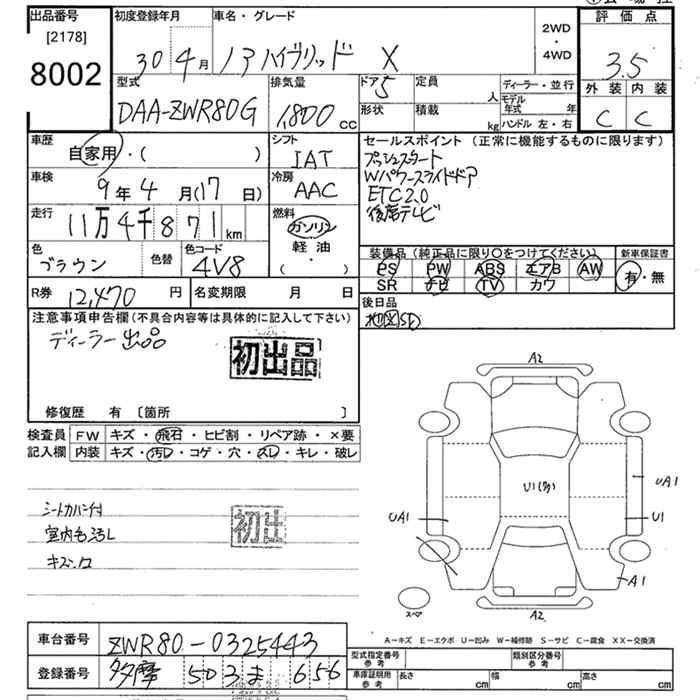 出品番号
[2178]
8002
初度登録年月
30年4月
車名・グレード
ノアハイブリッド X
2WD
・
4WD
評価点
3.5
外装 内装
C C
型式
DAA-ZWR80G
排気量
1,800 cc
ドア 5
形状
定員 人
積載 kg
ディーラー・並行
モデル年式 年
ハンドル 左・右
車歴
自家用・( )
シフト
IAT
車検
9年4月(17日)
冷房
AAC
走行
11万4千871km
燃料
ガソリン
軽油
・
( )
色
ブラウン
色替
色コード
4V8
R券
12,470円
名変期限 月 日
セールスポイント (正常に機能するものに限ります)
プッシュスタート
Wパワースライドドア
ETC2.0
後席テレビ
装備品 (純正品に限り○をつけてください)
PS PW ABS エアB AW
SR ナビ TV カワ
新車保証書
有・無
後日品
地図SD
注意事項申告欄 (不具合内容等は具体的に記入して下さい)
ディーラー出品
初出品
修復歴 有 [箇所 ]
検査員
記入欄
FW キズ・飛石・ヒビ割・リペア跡・×要
内装 キズ・汚レ・コゲ・穴・スレ・キレ・破レ
シートカバー付
室内色汚レ
初出
A2
U1(多)
UA1
UA1
U1
A1
スペア
A2
A-キズ E-エクボ U-凹み W-補修跡 S-サビ C-腐食 XX-交換済
車台番号
ZWR80-0325443
登録番号
多摩 503 ま 656
型式指定番号
参考
類別区分番号
参考
車庫証明用
参考
長さ cm
幅 cm
高さ cm